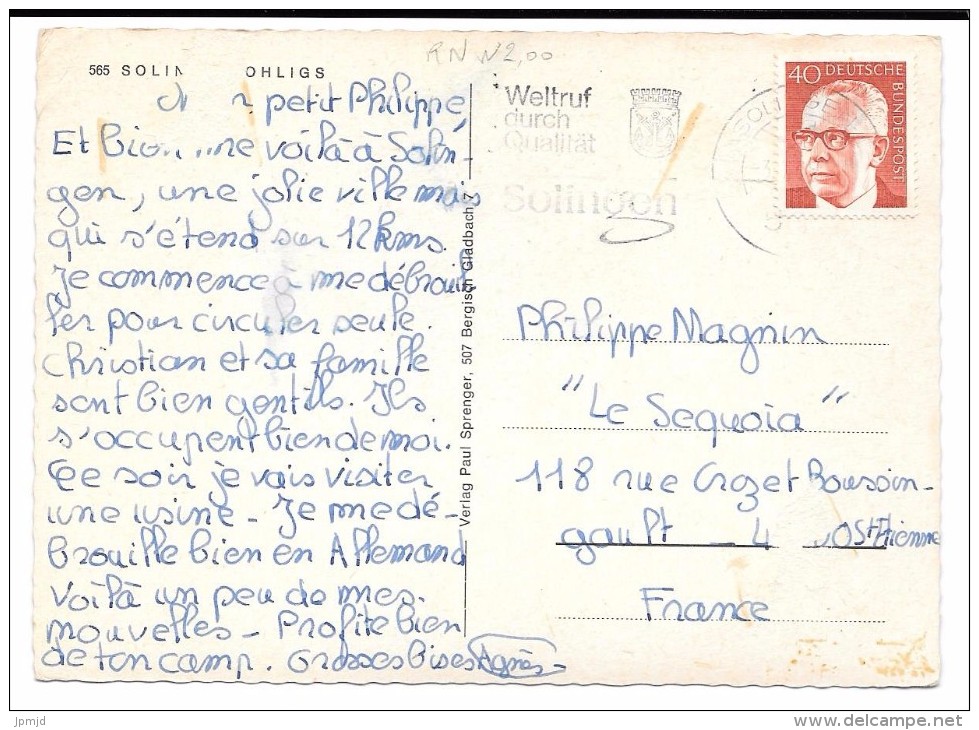 RN N2,00
565 SOLIN OHLIGS
petit Philippe,
Et bien me voilà à Solin-
gen, une jolie ville mais
qui s'étend sur 12 kms.
Je commence à me débrouil
ler pour circuler seule.
Christian et sa famille
sont bien gentils. Ils
s'occupent bien de moi.
Ce soir je vais visiter
une usine - Je me dé-
brouille bien en Allemand
Voilà un peu de mes
nouvelles - Profite bien
de ton camp. Grosses bises Agnès
Verlag Paul Sprenger, 507 Bergisch Gladbach 7
Weltruf
durch
Qualität
Solingen
40 DEUTSCHE
BUNDESPOST
Philippe Magnin
"Le Sequoia"
118 rue Crozet Boussin-
gault - 4 00 St Etienne
France
jpmjd
www.delcampe.net